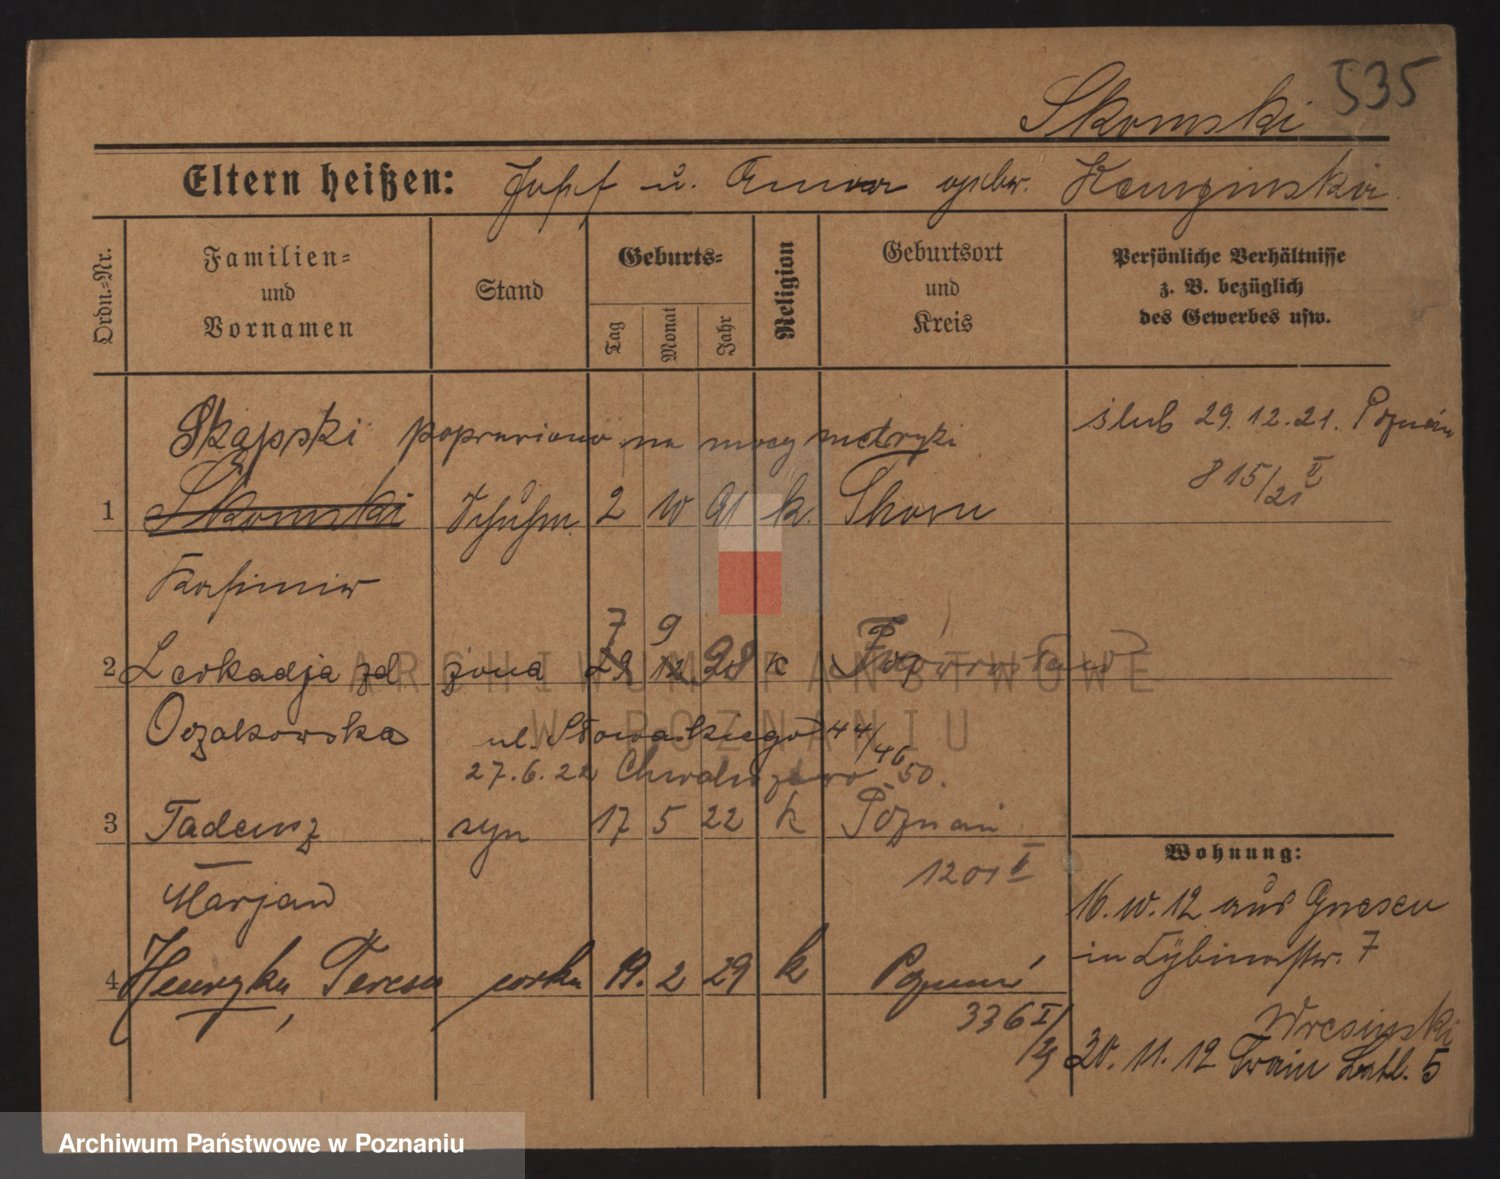 535
Skomski
Eltern heißen: Josef u. Anna gebor. Kempinska
Ordn.-Nr.
Familien- und Vornamen
Stand
Geburts-
Tag
Monat
Jahr
Religion
Geburtsort und Kreis
Persönliche Verhältnisse z. B. bezüglich des Gewerbes usw.
Skąpski poprawiono na mocy metryki
ślub 29.12.21. Poznań
815/21 II
1 Skomski Schuhm. 2 10 91 k. Thorn
Kasimir
7 9
2 Leokadja zd żona 29 12 98 k
Oczakowska
ul. Słowackiego 44/46
27.6.22 50.
3 Tadeusz syn 17 5 22 k Poznań
Marjan
1201 II
4 Henryka, Teresa córka 19. 2 29 k Poznań
336 I/29
Wohnung:
16.10.12 aus Gnesen
in 7
Wresinski
20.11.12 Train Batl. 5
ARCHIWUM PAŃSTWOWE
W POZNANIU
Archiwum Państwowe w Poznaniu